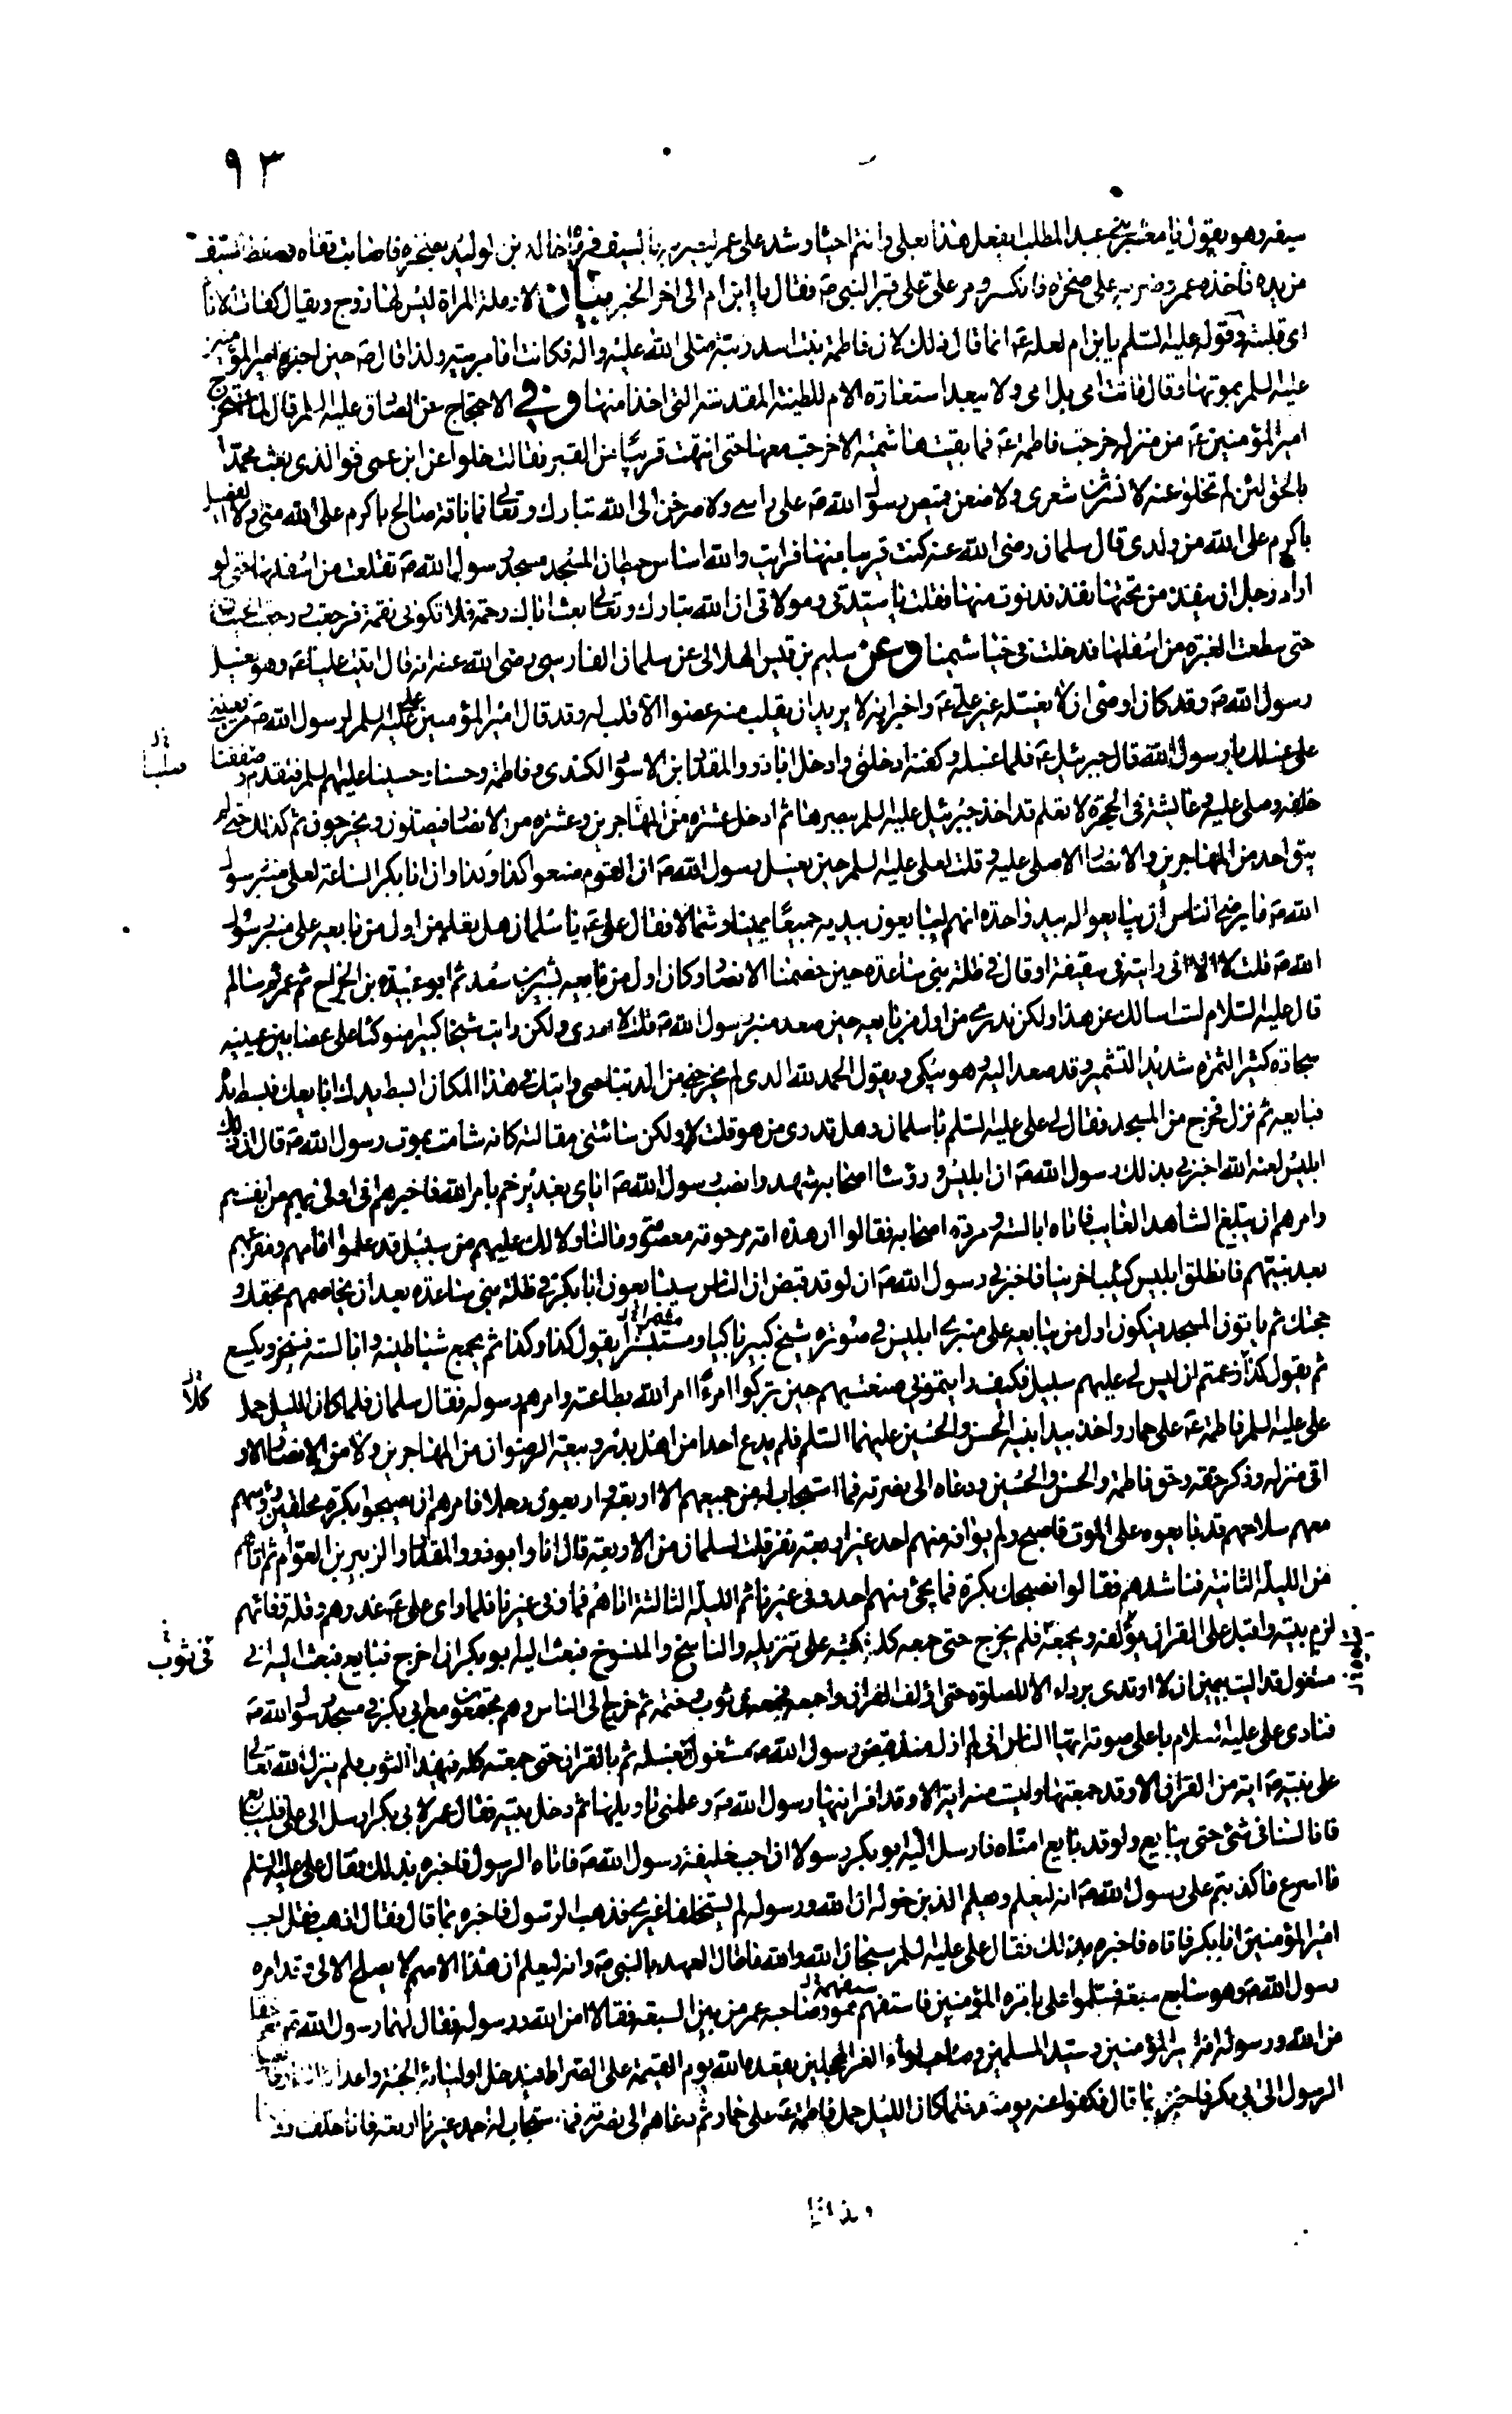 ٩٣
سيفه وهو يقول يا معشر بني عبد المطلب ايفعل هذا بعلي وانتم احياء وشد على عمر ليضربه بالسيف فرماه خالد بن الوليد بصخرة فاصابت قفاه وسقط السيف
من يده فاخذه عمر وضربه على صخرة فانكسر ومر علي على قبر النبي ص فقال يا ابن ام الى اخر الخبر بيان الارملة المراة ليس لها زوج ويقال كفات الاناء
اي قلبته وقوله عليه السلم يا بن ام لعله ع انما قال ذلك لان فاطمة بنت اسد ربته صلى الله عليه واله فكانت اما مربية ولذا قال ص حين اخبره امير المؤمنين
عليه السلم بموتها وقال ماتت امي بل امي ولا يبعد استعارة الام للطينة المقدسة التي اخذا منها وفي الاحتجاج عن الصادق عليه السلم قال لما استخرج
امير المؤمنين ع من منزله خرجت فاطمة ع فما بقيت هاشمية الا خرجت معها حتى انتهت قريبا من القبر فقالت خلوا عن ابن عمي فوالذي بعث محمدا
بالحق لئن لم تخلوا عنه لانشرن شعري ولاضعن قميص رسول الله ص على راسي ولاصرخن الى الله تبارك وتعالى فما ناقة صالح باكرم على الله مني ولا الفصيل
باكرم على الله من ولدي قال سلمان رضي الله عنه كنت قريبا منها فرايت والله اساس حيطان المسجد مسجد رسول الله ص تقلعت من اسفلها حتى لو
اراد رجل ان ينفذ من تحتها نفذ فدنوت منها فقلت يا سيدتي ومولاتي ان الله تبارك وتعالى بعث اباك رحمة فلا تكوني نقمة فرجعت ورجعت الحيطان
حتى سطعت الغبرة من اسفلها فدخلت في خياشيمنا وعن سليم بن قيس الهلالي عن سلمان الفارسي رضي الله عنه انه قال اتيت عليا ع وهو يغسل
رسول الله ص وقد كان اوصى ان لا يغسله غير علي ع واخبر انه لا يريد ان يقلب منه عضوا الا قلب له وقد قال امير المؤمنين عليه السلم لرسول الله ص من يعينني
على غسلك يا رسول الله قال جبرئيل ع فلما غسله وكفنه ادخلني وادخل اباذر والمقداد بن الاسود الكندي وفاطمة وحسنا وحسينا عليهم السلم فتقدم وصففنا
خلفه وصلى عليه وعايشة في الحجرة لا تعلم قد اخذ جبرئيل عليه السلم ببصرها ثم ادخل عشرة من المهاجرين وعشرة من الانصار فيصلون ويخرجون ثم كذلك حتى لم
يبق احد من المهاجرين والانصار الا صلى عليه وقلت لعلي عليه السلم حين يغسل رسول الله ص ان القوم صنعوا كذا وكذا وان ابابكر الساعة لعلى منبر رسول
الله ص ما يرضى الناس ان يبايعوا له بيد واحدة انهم ليبايعون بيديه جميعا يمينا وشمالا فقال علي ع يا سلمان هل تعلم من اول من بايعه على منبر رسول
الله ص قلت لا الا اني رايته في سقيفة او قال في ظلة بني ساعدة حين خصمنا الانصار وكان اول من بايعه بشير بن سعد ثم ابو عبيدة بن الجراح ثم عمر ثم سالم
قال عليه السلام لست اسالك عن هذا ولكن تدري من اول من بايعه حين صعد منبر رسول الله ص قلت لا ادري ولكن رايت شيخا كبيرا متوكئا على عصا بين عينيه
سجادة كثير الثمرة شديد التشمير وقد صعد اليه وهو يبكي ويقول الحمد لله الذي لم يخرجني من الدنيا حتى رايتك في هذا المكان ابسط يدك ابايعك فبسط يده
فبايعه ثم نزل فخرج من المسجد فقال لي علي عليه السلم يا سلمان وهل تدري من هو قلت لا ولكن سائتني مقالته كانه شامت بموت رسول الله ص قال ان ذلك
ابليس لعنه الله اخبرني بذلك رسول الله ص ان ابليس ورؤسا اصحابه شهدوا نصب رسول الله ص اياي بغدير خم بامر الله فاخبرهم اني اولى بهم من انفسهم
وامرهم ان يبلغ الشاهد الغايب فاتاه ابالسته ومردة اصحابه فقالوا ان هذه امة مرحومة معصومة وما لنا ولا لك عليهم من سبيل قد علموا امامهم ومفزعهم
بعد نبيهم فانطلق ابليس كئيبا حزينا فاخبرني رسول الله ص ان لو قد قبض ان الناس سيبايعون ابابكر في ظلة بني ساعدة بعد ان يخاصمهم بحقك و
حجتك ثم ياتون المسجد فيكون اول من يبايعه على منبري ابليس في صورة شيخ كبير باكيا ومستبشرا يقول كذا وكذا ثم يجمع شياطينه وابالسته فينخر ويكسع
ثم يقول كذا زعمتم ان ليس لي عليهم سبيل فكيف رايتموني صنعت بهم حين تركوا امر من امر الله بطاعته وامرهم رسوله فقال سلمان فلما كان الليل حمل
علي عليه السلم فاطمة ع على حمار واخذ بيد ابنيه الحسن والحسين عليهما السلم فلم يدع احدا من اهل بدر وبيعة الرضوان من المهاجرين ولا من الانصار الا و
اتى منزله وذكر حقه وحق فاطمة والحسن والحسين ودعاه الى نصرته فما استجاب له من جميعهم الا اربعة واربعون رجلا فامرهم ان يصبحوا بكرة محلقين رؤسهم
معهم سلاحهم قد بايعوه على الموت فاصبح ولم يوافه منهم احد غير اربعة نفر قلت لسلمان من الاربعة قال انا وابوذر والمقداد والزبير بن العوام ثم اتاهم
من الليلة الثانية فناشدهم فقالوا نصبحك بكرة فما يجئ منهم احد وفى غيرنا ثم الليلة الثالثة اتاهم فما وفى غيرنا فلما راى علي ع غدرهم وقلة وفائهم
لزم بيته واقبل على القران يؤلفه ويجمعه فلم يخرج حتى جمعه كله فكتبه على تنزيله والناسخ والمنسوخ فبعث اليه ابوبكر ان اخرج فبايع فبعث اليه اني
مشغول قد اليت بيمين ان لا ارتدي برداء الا للصلوة حتى اؤلف القران واجمعه فجمعه في ثوب وختمه ثم خرج الى الناس وهم مجتمعون مع ابي بكر في مسجد رسول الله ص
فنادى علي عليه السلام باعلى صوته ايها الناس اني لم ازل منذ قبض رسول الله ص مشغولا بغسله ثم بالقران حتى جمعته كله في هذا الثوب فلم ينزل الله تعالى
على نبيه ص اية من القران الا وقد جمعتها وليست منه اية الا وقد اقرانيها رسول الله ص وعلمني تاويلها ثم دخل بيته فقال عمر لابي بكر ارسل الى علي فليبايع
فانا لسنا في شئ حتى يبايع ولو قد بايع امناه فارسل اليه ابوبكر رسولا ان اجب خليفة رسول الله ص فاتاه الرسول فاخبره بذلك فقال علي عليه السلم
ما اسرع ما كذبتم على رسول الله ص انه ليعلم ويعلم الذين حوله ان الله ورسوله لم يستخلفا غيري فذهب الرسول فاخبره بما قال فقال اذهب فقل اجب
امير المؤمنين ابابكر فاتاه فاخبره بذلك فقال علي عليه السلم سبحان الله والله ما طال العهد بالنبي ص وانه ليعلم ان هذا الاسم لا يصلح الا لي وقد امره
رسول الله ص وهو سابع سبعة فسلموا علي بامرة المؤمنين فاستفهم هو وصاحبه عمر من بين السبعة فقالا امن الله ورسوله فقال لهما رسول الله ص نعم حقا
من الله ورسوله انه امير المؤمنين وسيد المسلمين وصاحب لواء الغر المحجلين يقعده الله يوم القيمة على الصراط فيدخل اولياءه الجنة واعداءه النار فانطلق
الرسول الى ابي بكر فاخبره بما قال فكفوا عنه يومئذ فلما كان الليل حمل فاطمة ع على حمار ثم دعاهم الى نصرته فما استجاب له احد غيرنا اربعة فانا حلقنا رؤسنا
في ثوب
كلا